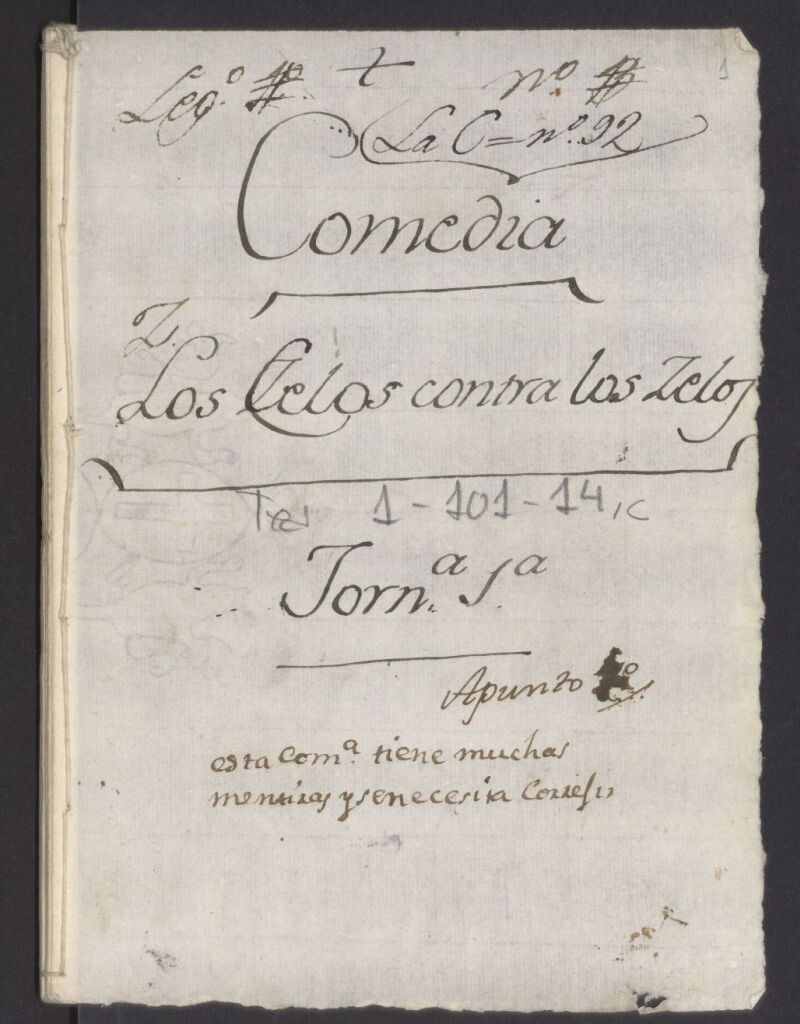 1
Leg.º + nº
La C = nº. 92
Comedia
Z.
Los Zelos contra los Zelos
Tea 1-101-14, c
Jorn.ª 1ª
Apunto
esta Com.ª tiene muchas
mentiras y se necesita Correjir